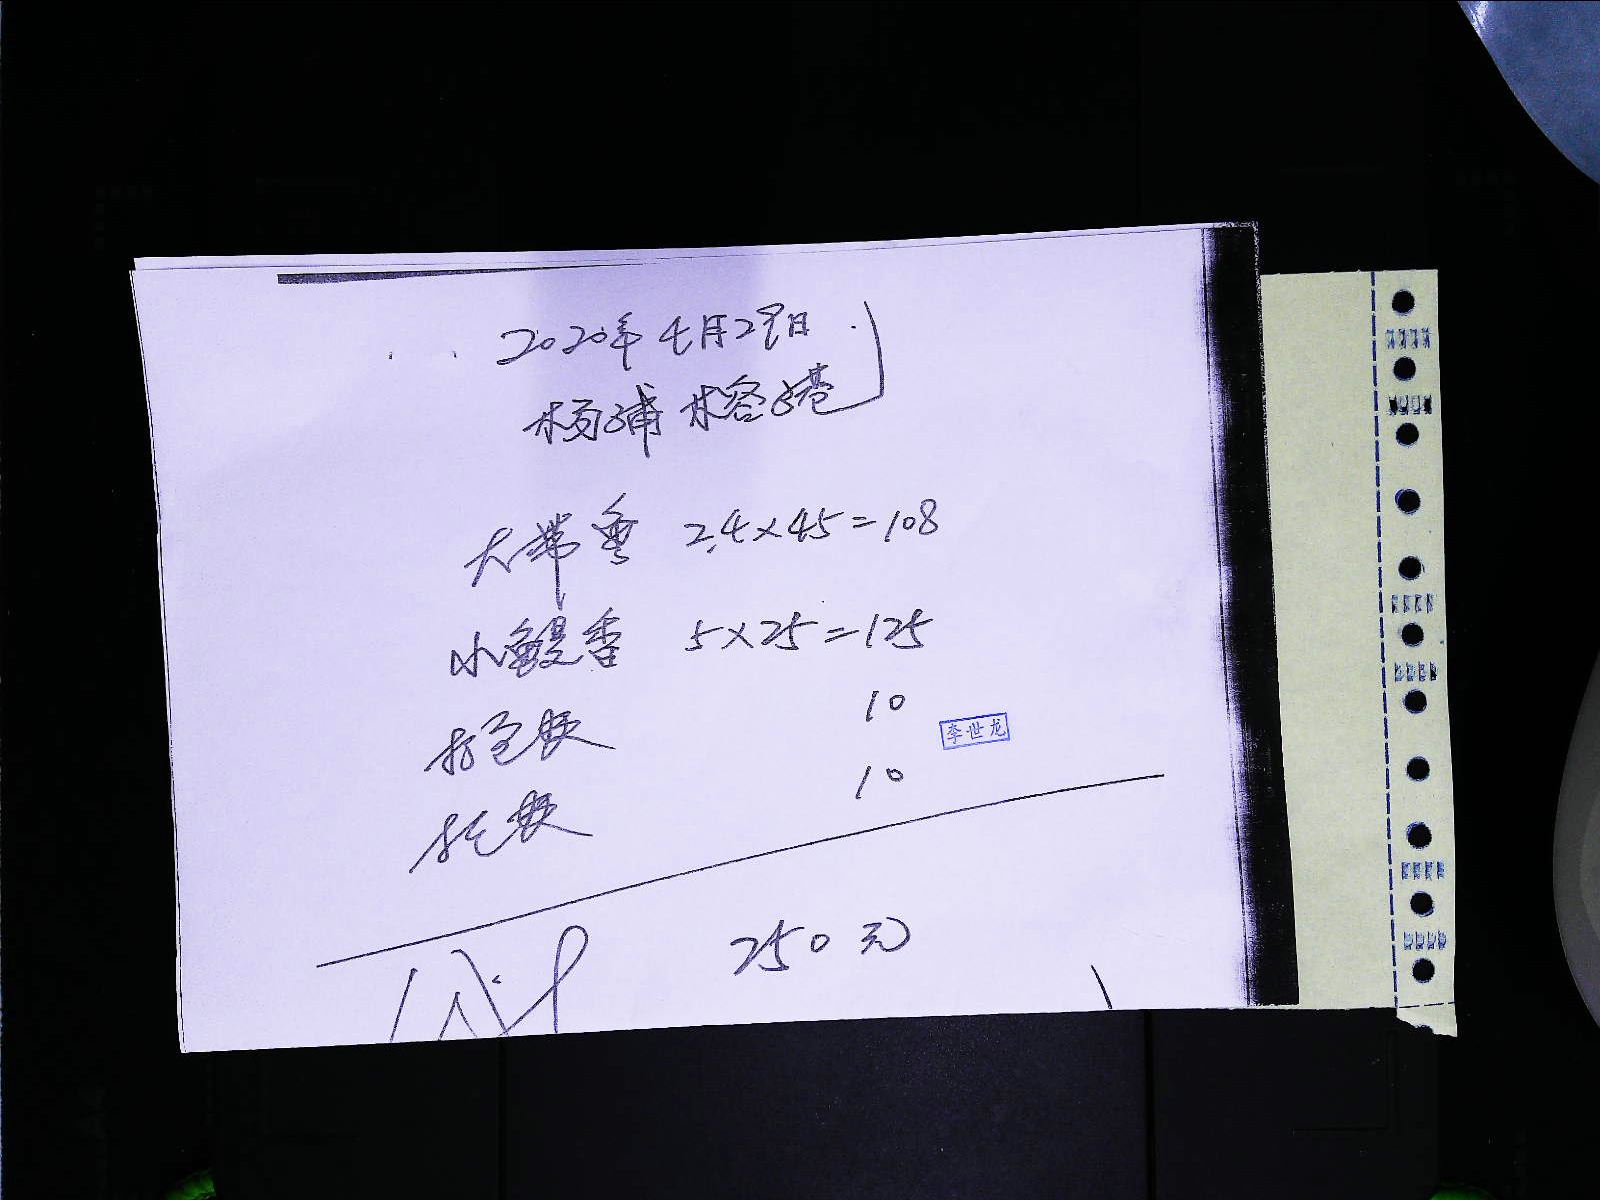 2020年4月29日
杨浦 榕港
大带鱼 2.4×45=108
小鳗香 5×25=125
打包费 10
托费 10
李世龙
250元